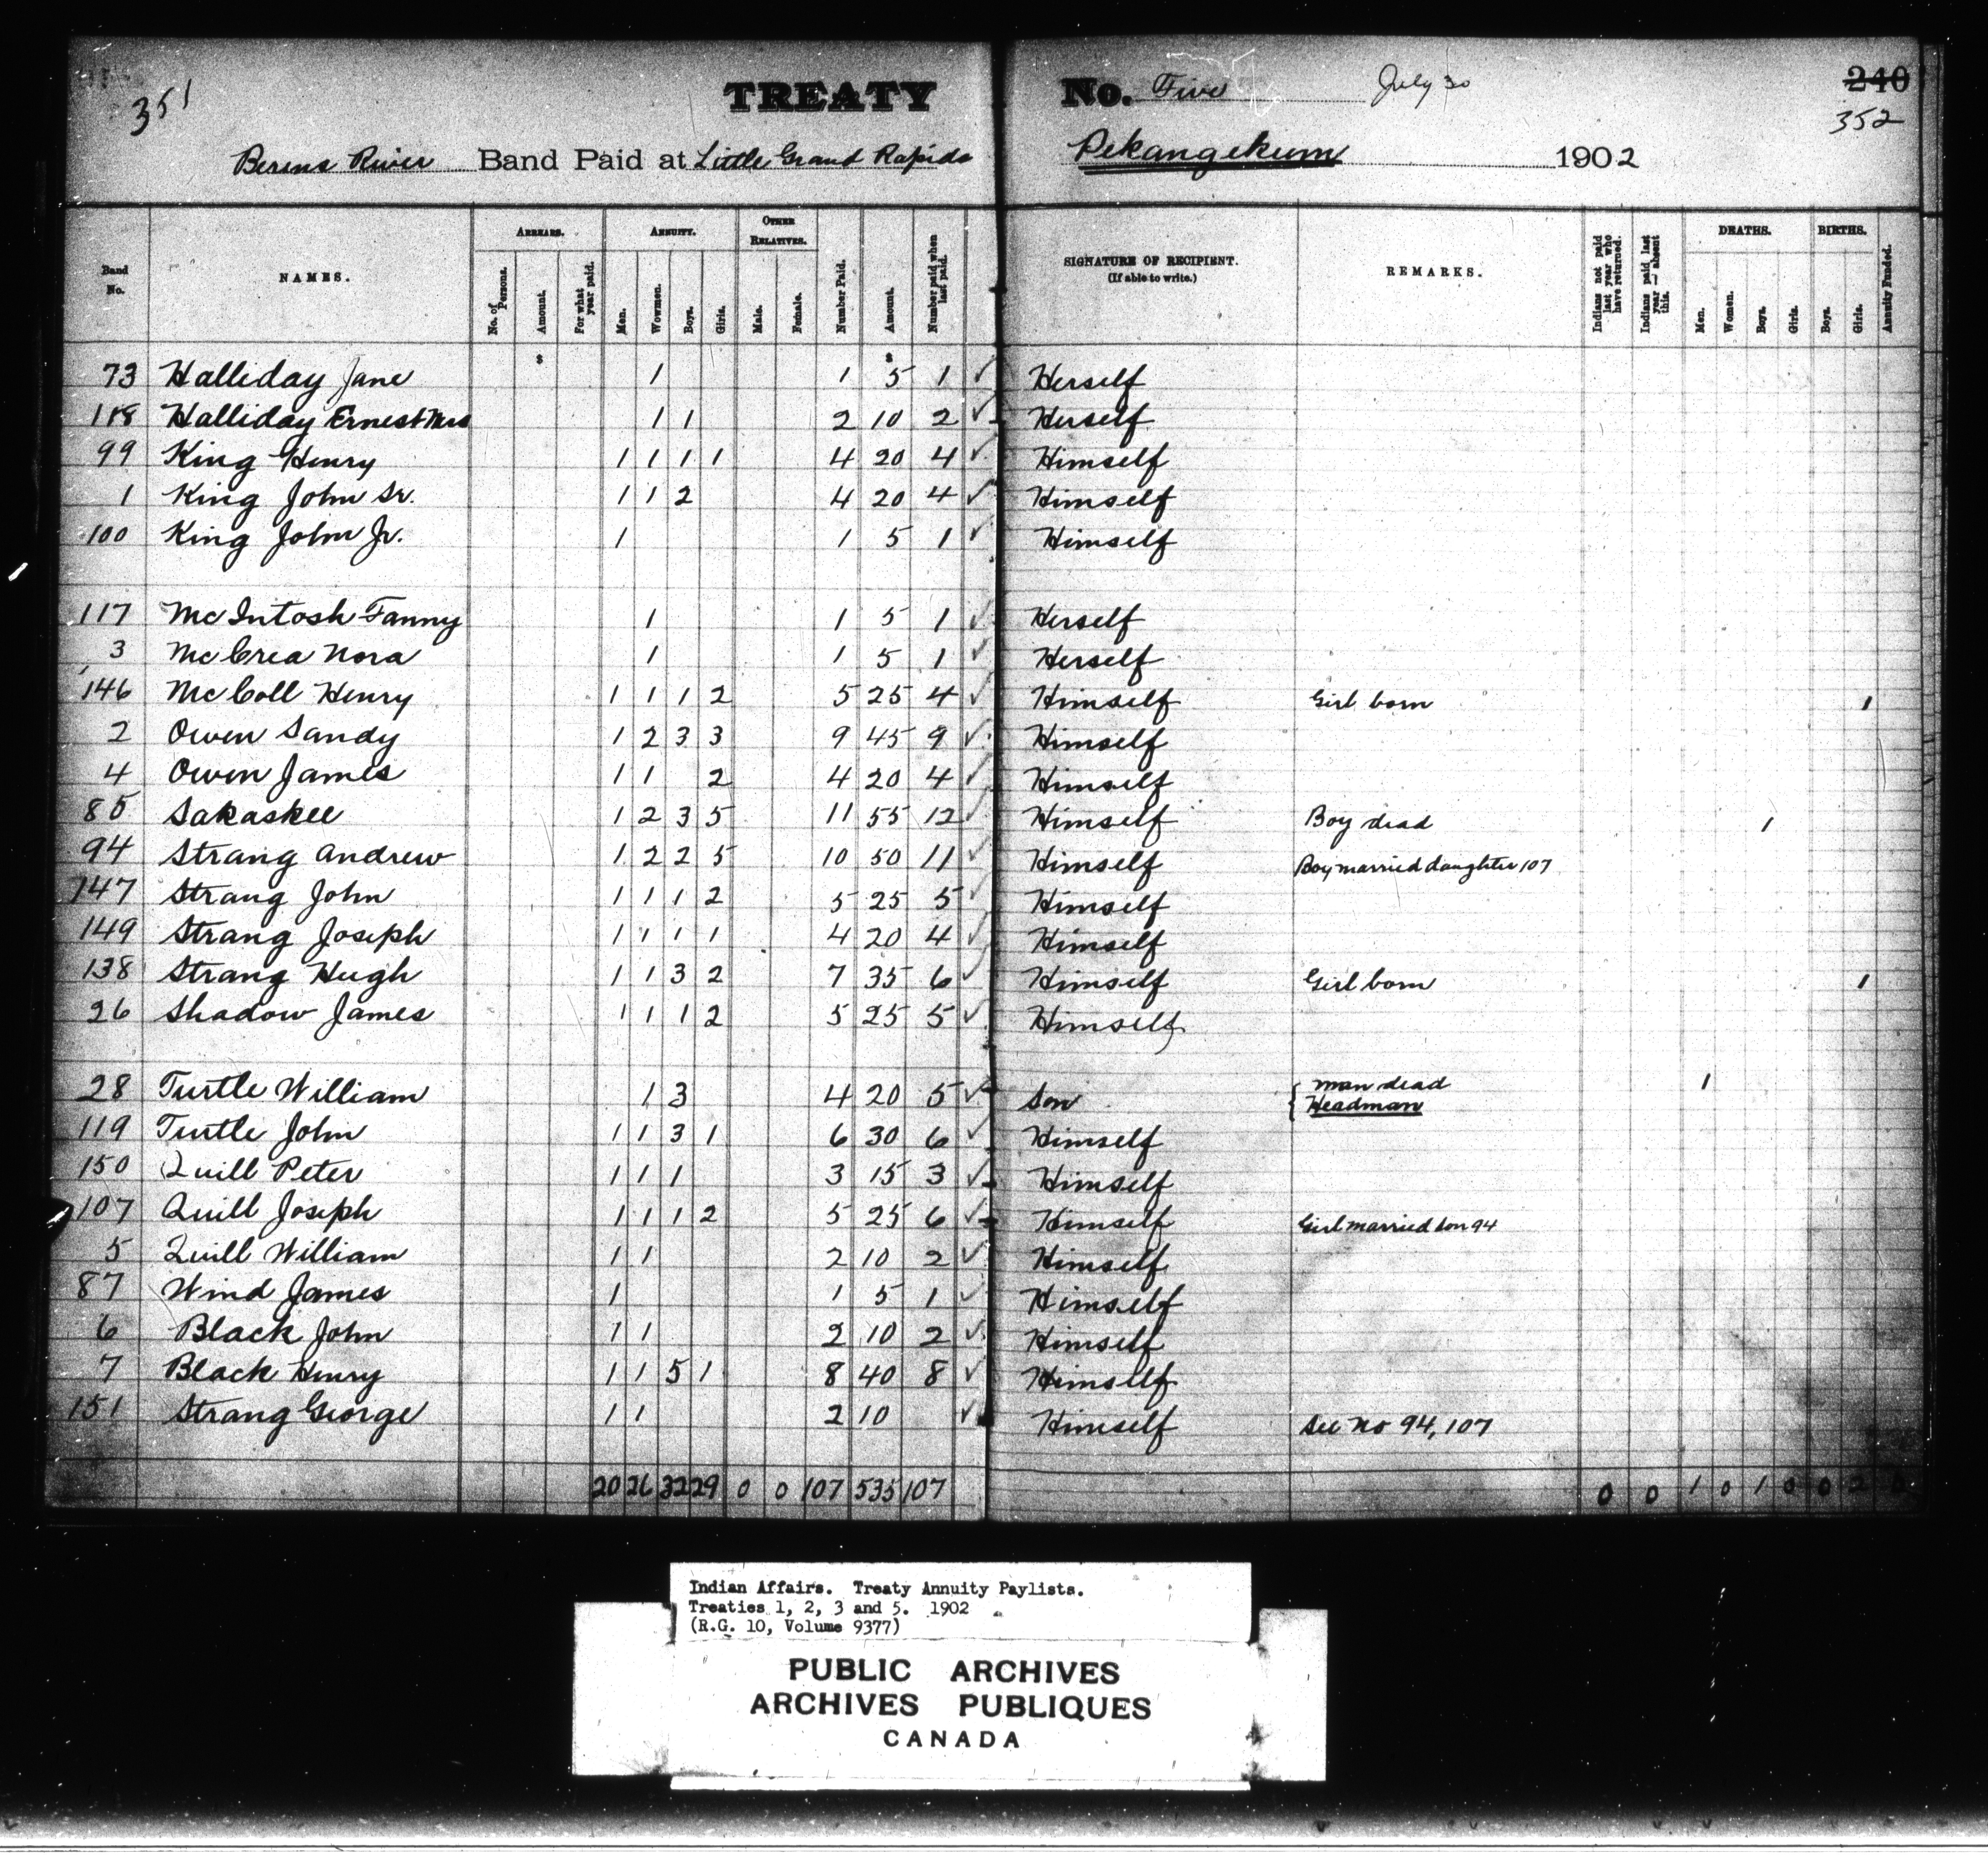 351 TREATY No. Five July 30 240
352
Berens River Band Paid at Little Grand Rapids Pekangekum 1902
Band No. NAMES. ARREARS. No. of Persons. Amount. For what year paid. ANNUITY. Men. Wowmen. Boys. Girls. OTHER RELATIVES. Male. Female. Number Paid. Amount. Number paid when last paid. SIGNATURE OF RECIPIENT. (If able to write.) REMARKS. Indians not paid last year who have returned. Indians paid last year — absent this. DEATHS. Men. Women. Boys. Girls. BIRTHS. Boys. Girls. Annuity Funded.
$ $
73 Halliday Jane 1 1 5 1 ✓ Herself
118 Halliday Ernest Mrs 1 1 2 10 2 ✓ Herself
99 King Henry 1 1 1 1 4 20 4 ✓ Himself
1 King John Sr. 1 1 2 4 20 4 ✓ Himself
100 King John Jr. 1 1 5 1 ✓ Himself
117 McIntosh Fanny 1 1 5 1 ✓ Herself
3 McCrea Nora 1 1 5 1 ✓ Herself
146 McColl Henry 1 1 1 2 5 25 4 ✓ Himself Girl born 1
2 Owen Sandy 1 2 3 3 9 45 9 ✓ Himself
4 Owen James 1 1 2 4 20 4 ✓ Himself
85 Sakaskee 1 2 3 5 11 55 12 ✓ Himself Boy dead 1
94 Strang Andrew 1 2 2 5 10 50 11 ✓ Himself Boy married daughter 107
147 Strang John 1 1 1 2 5 25 5 ✓ Himself
149 Strang Joseph 1 1 1 1 4 20 4 ✓ Himself
138 Strang Hugh 1 1 3 2 7 35 6 ✓ Himself Girl born 1
26 Shadow James 1 1 1 2 5 25 5 ✓ Himself
28 Turtle William 1 3 4 20 5 ✓ Son { Man dead 1
Headman
119 Turtle John 1 1 3 1 6 30 6 ✓ Himself
150 Quill Peter 1 1 1 3 15 3 ✓ Himself
107 Quill Joseph 1 1 1 2 5 25 6 ✓ Himself Girl married son 94
5 Quill William 1 1 2 10 2 ✓ Himself
87 Wind James 1 1 5 1 ✓ Himself
6 Black John 1 1 2 10 2 ✓ Himself
7 Black Henry 1 1 5 1 8 40 8 ✓ Himself
151 Strang George 1 1 2 10 ✓ Himself See No 94, 107
20 26 32 29 0 0 107 535 107 0 0 1 0 1 0 0 2
Indian Affairs. Treaty Annuity Paylists.
Treaties 1, 2, 3 and 5. 1902
(R.G. 10, Volume 9377)
PUBLIC ARCHIVES
ARCHIVES PUBLIQUES
CANADA